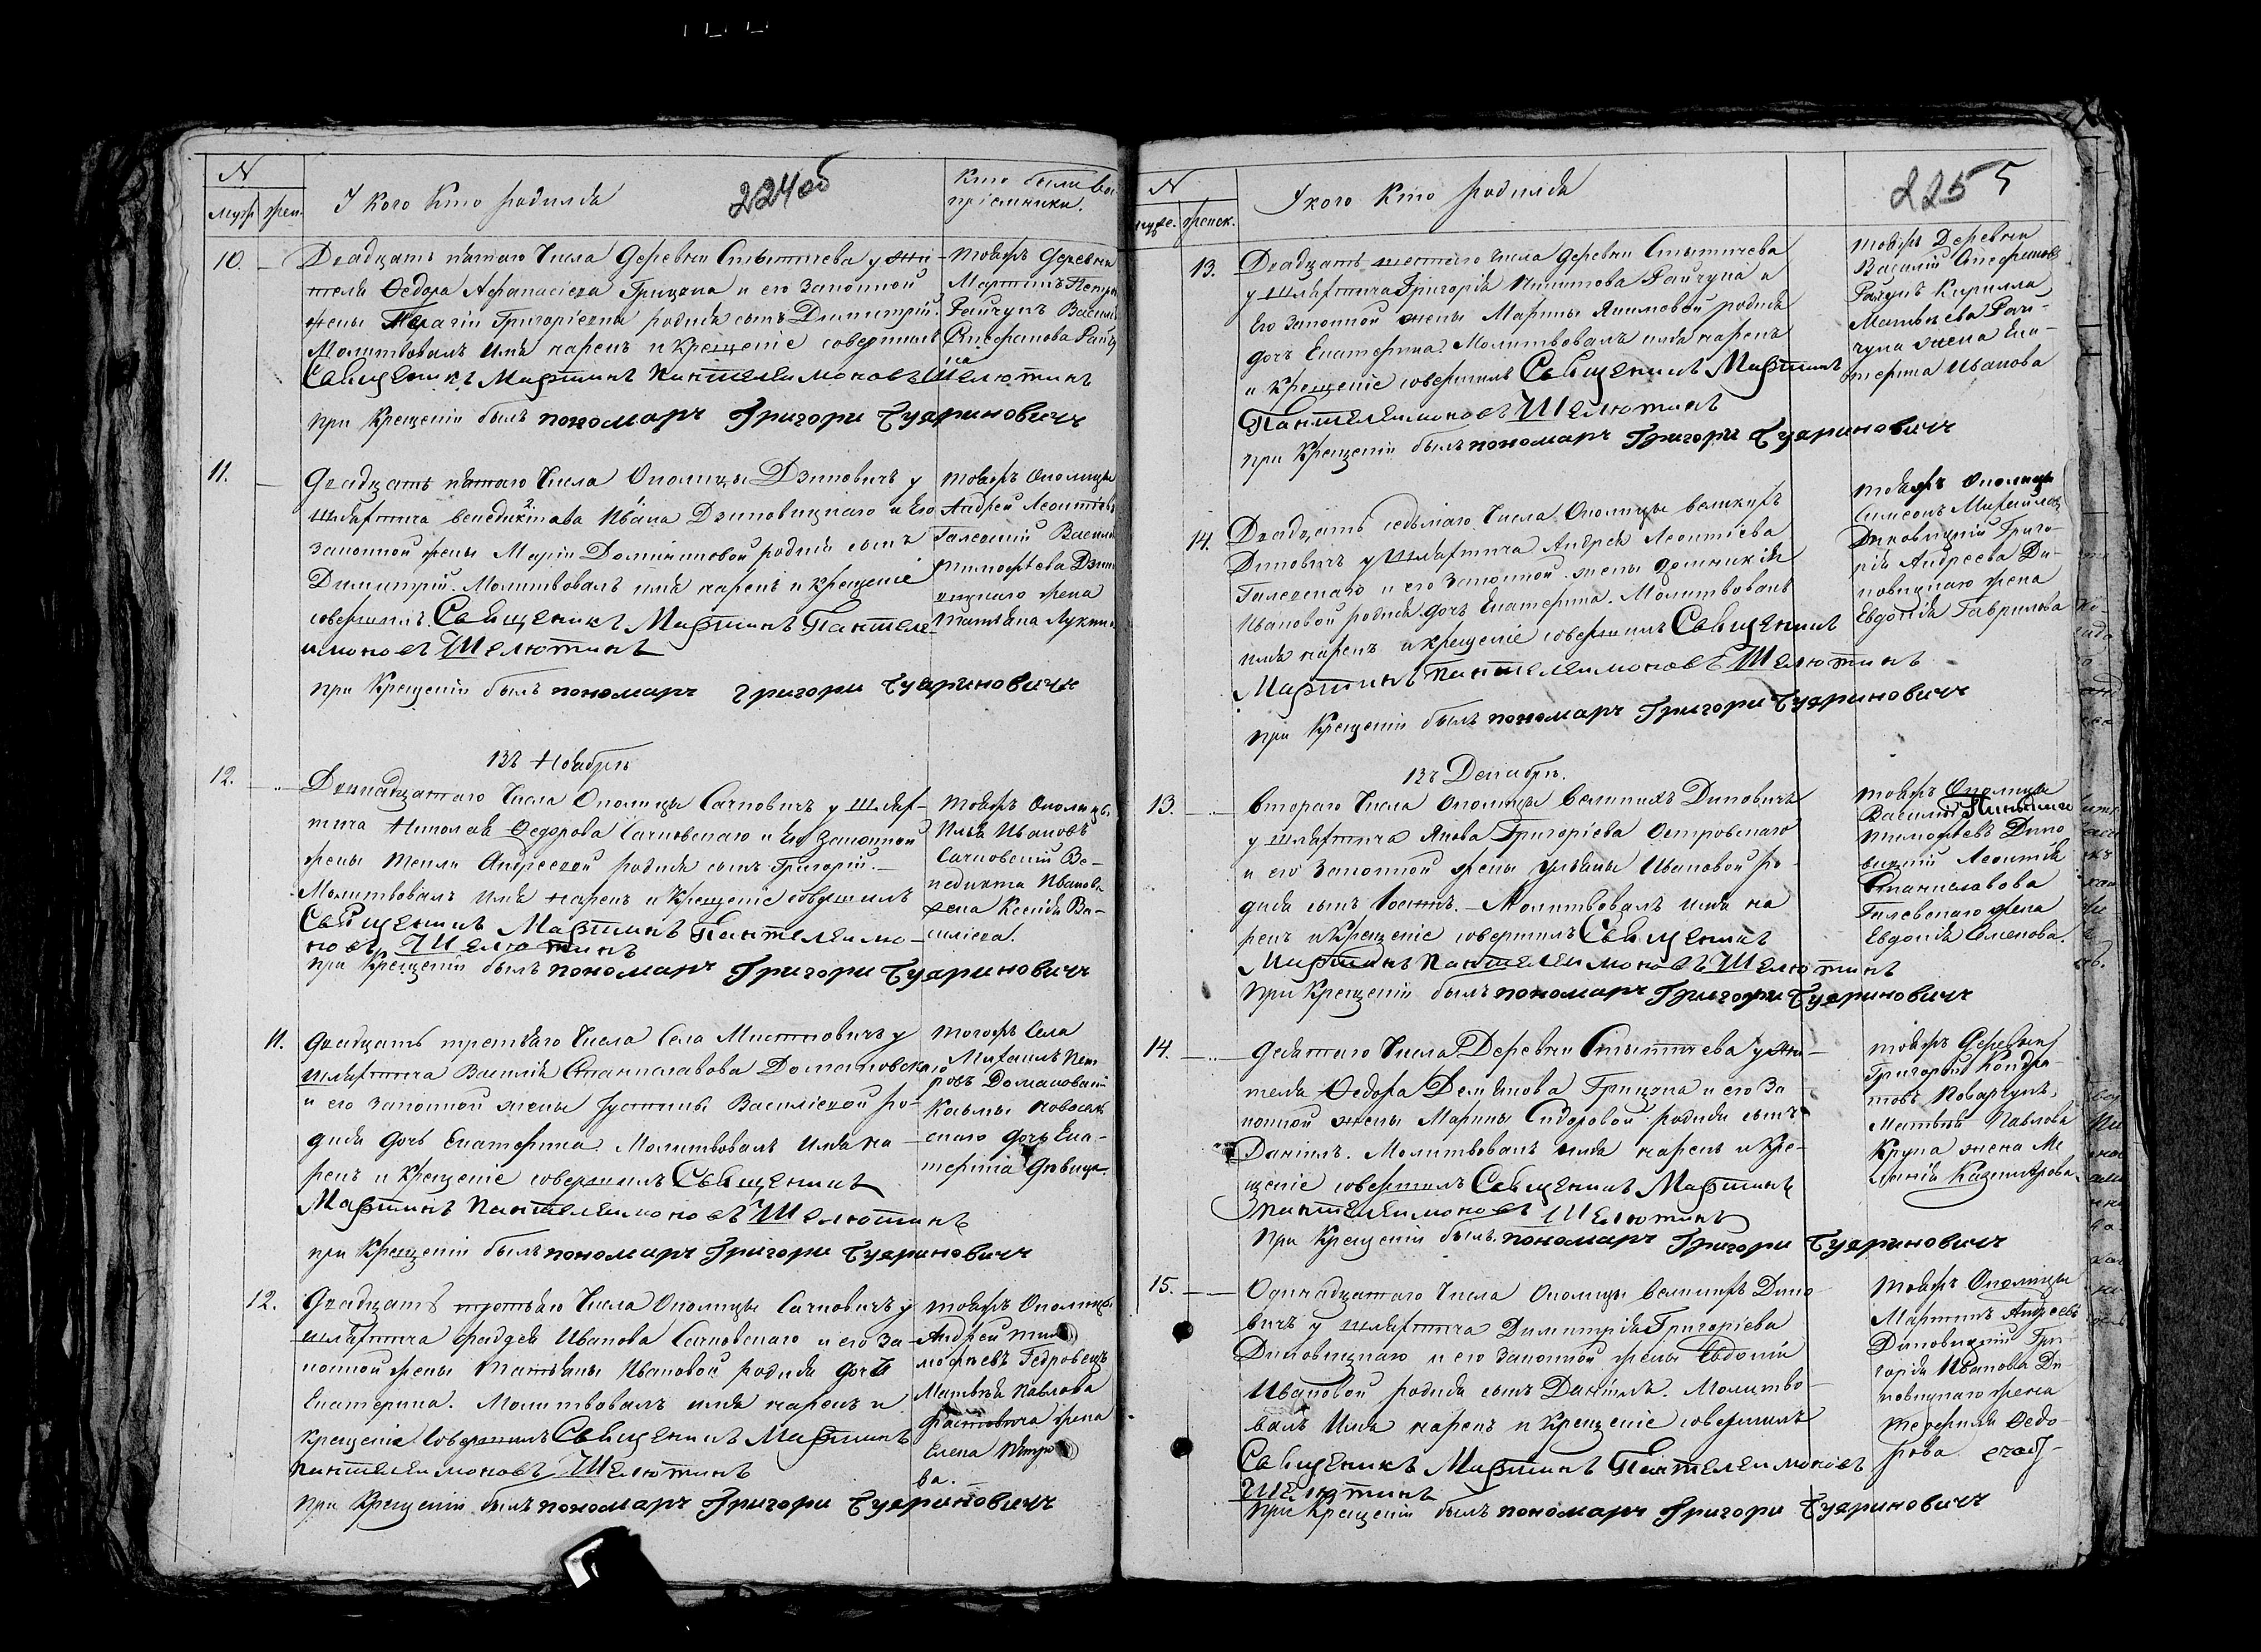 N
муж. жен.
У кого Кто родился
224 об
Кто были вос
пріемники.
10.
Двадцать пятаго Числа Деревни Стытычева у жи-
теля Федора Афанасіева Грицона и его Законной
жены Пелагіи Григоріевны родился сынъ Димитрій.
Молитвовалъ Имя нарекъ и Крещеніе совершилъ
Священикъ Мартинъ Пантелеимоновъ Шелютинъ
при Крещеніи былъ пономарь Григори Туариновичъ
тоьяжъ Деревни
Мартинъ
Райчукъ Васил
Стефанова Райчу
на
11.
Двадцать пятаго Числа Околицы Дзиповичъ у
шляхтича Венедиктова Ивана Дзиповицкаго и Его
законной жены Маріи Доминиковой родился сынъ
Димитрій. Молитвовалъ имя нарекъ и крещеніе
совершилъ Священикъ Мартинъ Пантеле
имоновъ Шелютинъ
при Крещеніи былъ пономарь Григори Туариновичъ
тояжъ Околицы
Андрей Леонтіевъ
Галевскій Васил
Тимофеева Дзип
овицкаго жена
Татьяна Лукин
13ъ Ноября
12.
Двенадцатаго Числа Околицы Сачковичъ у Шлях-
тича Николая Федорова Сачковскаго и Его Законной
жены Теклы Андреевой родился сынъ Григорій.
Молитвовалъ Имя нарекъ и Крещеніе совершилъ
Священикъ Мартинъ Пантелеимо-
новъ Шелютинъ
При Крещеніи былъ пономарь Григори Туариновичъ
тояжъ Околицы
Илья Ивановъ
Сачковскій Ве-
недикта Иванова
жена Ксенія Ва-
силіева.
11.
Двадцать третьяго Числа Села Мистковичъ у
Шляхтича Василія Станиславова Домановскаго
и его Законной жены Густины Василіевой ро-
дился дочь Екатерина. Молитвовалъ Имя на-
рекъ и Крещеніе совершилъ Священикъ
Мартинъ Пантелеимоновъ Шелютинъ
при Крещеніи былъ пономарь Григори Туариновичъ
тогожъ Села
Михаилъ Пет
ровъ Домановскій
Козьмы Новосель
скаго дочь Ека-
терина Девица.
12.
Двадцать третьяго Числа Околицы Сачковичъ у
шляхтича Фадея Иванова Сачковскаго и его За-
конной жены Татьяны Ивановой родился дочь
Екатерина. Молитвовалъ имя нарекъ и
крещеніе Совершилъ Священикъ Мартинъ
Пантелеимоновъ Шелютинъ
при Крещеніи былъ пономарь Григори Туариновичъ
тояжъ Околицы
Андрей Тим
мофеевъ Гедровецъ
Матвея Павлова
жена
Елена Петро
ва.
N
муже. женск.
У кого Кто родился
225 5
13.
Двадцать шестаго числа Деревни Стытычева
у Шляхтича Григорія Никитова Райчука и
Его Законной жены Марины Якимовой родился
дочь Екатерина. Молитвовалъ имя нарекъ
и Крещеніе совершилъ Священикъ Мартинъ
Пантелеимоновъ Шелютинъ
при Крещеніи былъ пономарь Григори Туариновичъ
тояжъ Деревни
Василій Стефановъ
Райчукъ Кирилла
Матвеева Рай-
чука жена Ека-
терина Иванова
14.
Двадцать седьмаго Числа Околицы великихъ
Диковичъ у Шляхтича Андрея Леонтіева
Галевскаго и его Законной жены Доминикіи
Ивановой родился дочь Екатерина. Молитвовалъ
имя нарекъ и крещеніе совершилъ Священикъ
Мартинъ Пантелеимоновъ Шелютинъ
при Крещеніи былъ пономарь Григори Туариновичъ
тояжъ Околицы
Симеонъ Михайловъ
Диковицкій Григо-
рія Андреева Ди-
ковицкаго жена
Евдокія Гаврилова
13ъ Декабря.
13.
Втораго Числа Околицы Великихъ Диковичъ
у Шляхтича Якова Григоріева Островскаго
и его Законной жены Ульяны Ивановой ро-
дился сынъ Іосифъ. Молитвовалъ имя на
рекъ и Крещеніе совершилъ Священикъ
Мартинъ Пантелеимоновъ Шелютинъ
при Крещеніи былъ пономарь Григори Туариновичъ
тояжъ Околицы
Василій
Тимофеевъ Дико
вицкій Леонтія
Станиславова
Галевскаго жена
Евдокія Семенова.
14.
Девятаго Числа Деревни Стытычева у жи-
теля Федора Демьянова Грицона и его За
конной жены Марины Сидоровой родился сынъ
Даніилъ. Молитвовалъ имя нарекъ и Кре-
щеніе совершилъ Священикъ Мартинъ
Пантелеимоновъ Шелютинъ
При Крещеніи былъ пономарь Григори Туариновичъ
тояжъ Деревни
Григорій Кондра-
товъ Поварчукъ,
Матвея Павлова
Крупа жена Ме
ланія Казимирова.
15.
Одинадцатаго Числа Околицы Великихъ Дико
вичъ у шляхтича Димитрія Григоріева
Диковицкаго и его Законной жены Евдокіи
Ивановой родился сынъ Даніилъ. Молитво-
валъ Имя нарекъ и Крещеніе совершилъ
Священикъ Мартинъ Пантелеимоновъ
Шелютинъ
при Крещеніи былъ пономарь Григори Туариновичъ
тояжъ Околицы
Мартинъ Андреевъ
Диковицкій Гри
горія Иванова Ди
ковицкаго жена
Федо-
рова